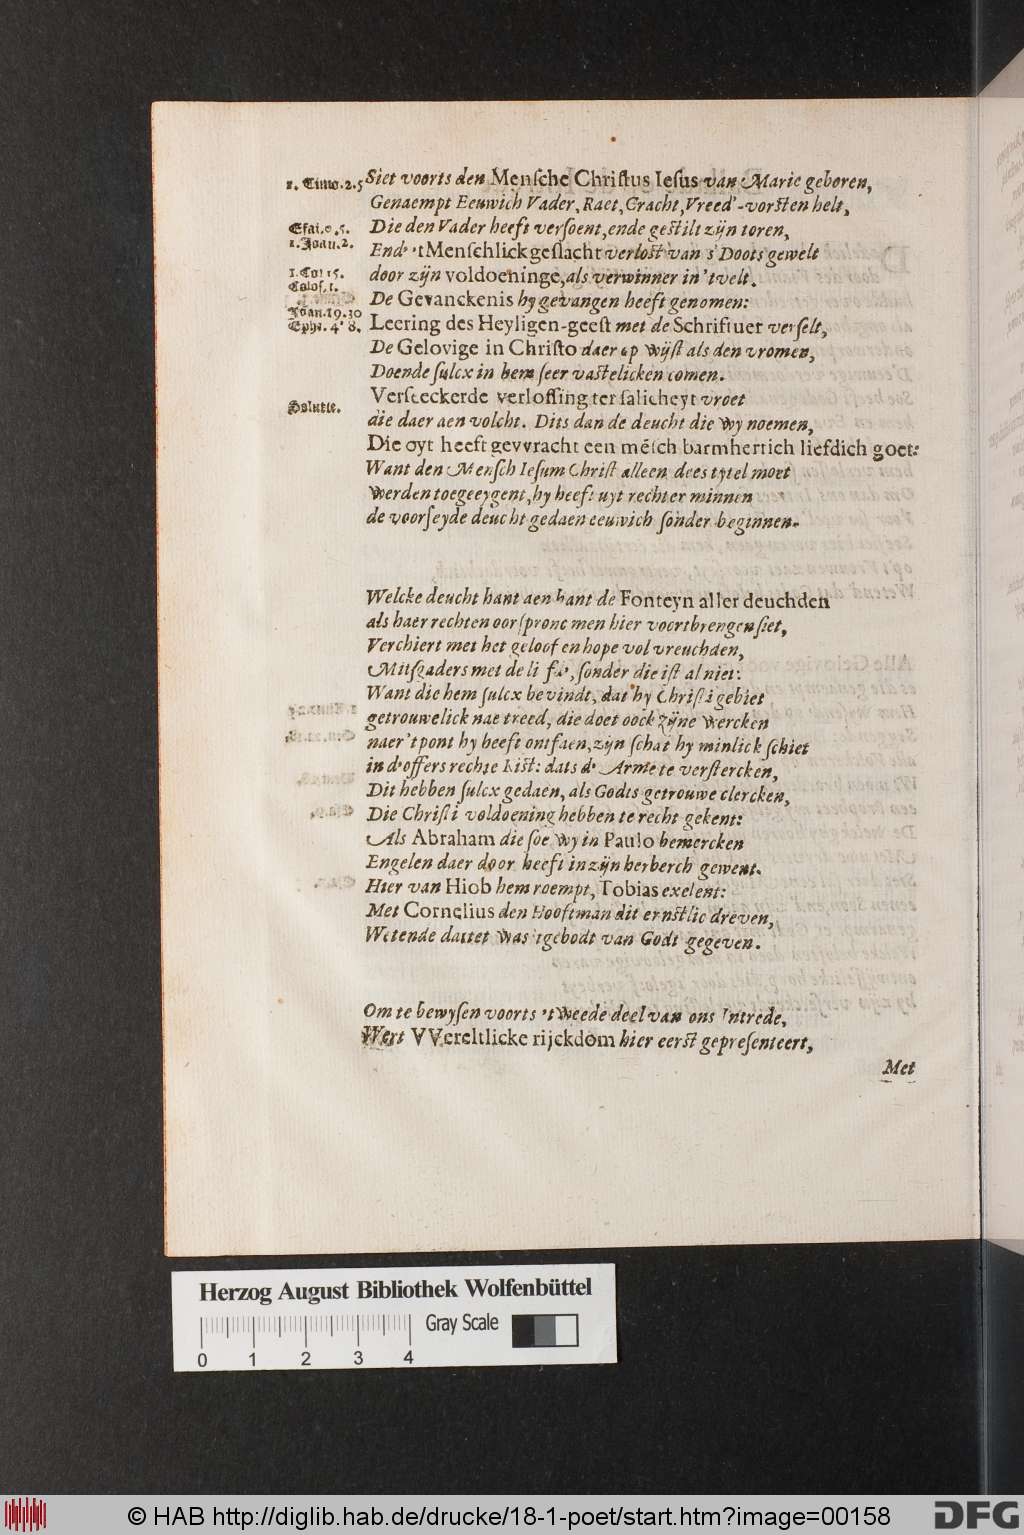 1. Timo. 2. 5 Siet voorts den Menſche Chriſtus Ieſus van Marie geboren,
Genaempt Eeuwich Vader, Raet, Cracht, Vreed'-vorſten helt,
Eſai. 9. 5. Die den Vader heeft verſoent, ende geſtilt zijn toren,
1. Joan. 2. End' 't Menſchlick geſlacht verloſt van s'Doots gewelt
1. Cor 15. door zijn voldoeninge, als verwinner in 'tvelt.
Coloſ. 1. De Gevanckenis hy gevangen heeft genomen:
Joan. 19. 30 Leering des Heyligen-geeſt met de Schriftuer verſelt,
Ephe. 4. 8. De Gelovige in Chriſto daer op wijſt als den vromen,
Doende ſulcx in hem ſeer vaſtelicken comen.
Verſeeckerde verloſſing ter ſalicheyt vroet
Solutie. die daer aen volcht. Dits dan de deucht die wy noemen,
Die oyt heeft gevvracht een mẽſch barmhertich liefdich goet:
Want den Menſch Ieſum Chriſt alleen dees tytel moet
werden toegeeygent, hy heeft uyt rechter minnen
de voorſeyde deucht gedaen eeuwich ſonder beginnen.
Welcke deucht hant aen hant de Fonteyn aller deuchden
als haer rechten oorſpronc men hier voortbrengen ſiet,
Verchiert met het geloof en hope vol vreuchden,
Mitſgaders met de ſonder die iſt al niet:
Want die hem ſulcx bevindt, dat hy Chriſti gebiet
getrouwelick nae treed, die doet oock zijne wercken
naer 'tpont hy heeft ontfaen, zijn ſchat hy minlick ſchiet
in d'offers rechte kiſt: dats d' Arme te verſtercken,
Dit hebben ſulcx gedaen, als Godts getrouwe clercken,
Die Chriſti voldoening hebben te recht gekent:
Als Abraham die ſoe wy in Paulo bemercken
Engelen daer door heeft in zijn herberch gewent.
Hier van Hiob hem roempt, Tobias exelent:
Met Cornelius den Hooftman dit ernſtlic dreven,
Wetende dattet was 'tgebodt van Godt gegeven.
Om te bewyſen voorts 't weede deel van ons Intrede,
Wert VVereltlicke rijckdom hier eerſt gepreſenteert,
Met
Herzog August Bibliothek Wolfenbüttel
Gray Scale
0 1 2 3 4
© HAB http://diglib.hab.de/drucke/18-1-poet/start.htm?image=00158
DFG